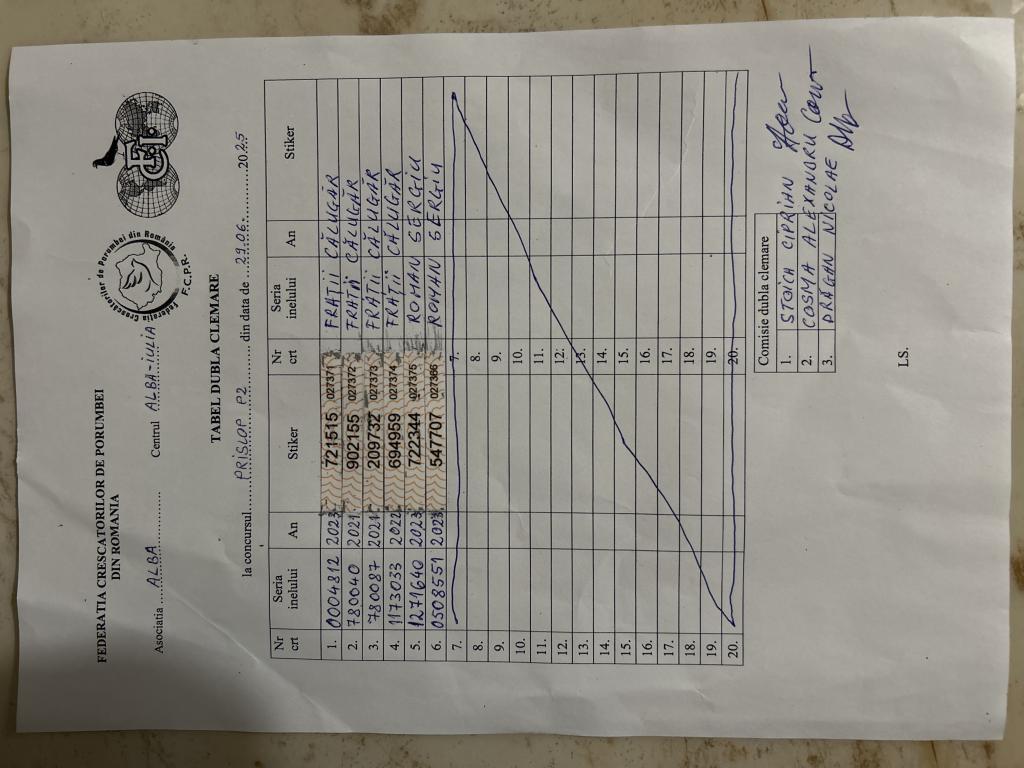 FEDERATIA CRESCATORILOR DE PORUMBEI
DIN ROMANIA
Federatia Crescătorilor de Porumbei din România
F.C.P.R.
Asociatia ....ALBA............... Centrul ..ALBA-IULIA
TABEL DUBLA CLEMARE
la concursul.......PRISLOP P2......... din data de ....29.06............2025
Nr crt Seria inelului An Stiker Nr crt Seria inelului An Stiker
1. 0004812 2023 721515 027371 FRAȚII CĂLUGĂR
2. 780040 2021 902155 027372 FRAȚII CĂLUGĂR
3. 780087 2021 209732 027373 FRAȚII CĂLUGĂR
4. 1173033 2022 694959 027374 FRAȚII CĂLUGĂR
5. 1271640 2023 722344 027375 ROMAN SERGIU
6. 0508551 2023 547707 027386 ROMAN SERGIU
7. 7.
8. 8.
9. 9.
10. 10.
11. 11.
12. 12.
13. 13.
14. 14.
15. 15.
16. 16.
17. 17.
18. 18.
19. 19.
20. 20.
Comisie dubla clemare
1. STOICA CIPRIAN
2. COSMA ALEXANDRU
3. DRĂGAN NICOLAE
LS.